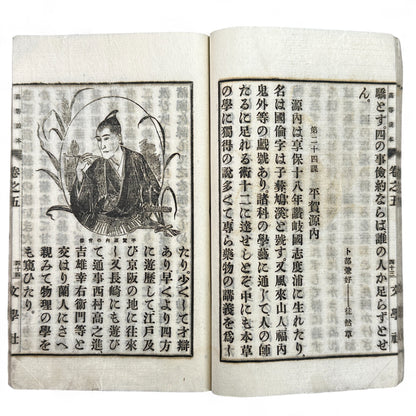 驕とす四の事儉約ならば誰の人か足らずとせ
ん。
卜部兼好――徒然草
第二十四課 平賀源内
源内は享保十八年讚岐國志度浦に生れたり、
名は國倫字は子彝鳩溪と號す又風來山人福内
鬼外等の戲號あり、諸科の學藝に通じて人の師
たるに足れる術十二に達せしとぞ中にも本草
の學に獨得の說多くて專ら藥物の講義を爲し
卷之五
文學社
平賀源内の肖像
たり。少くして才辯
あり早くより四方
に遊歷して江戸及
び京阪の地に往來
し又長崎にも遊び
て通事西村高之進、
吉雄幸右衞門等と
交はり蘭人にさへ
親みて物理の學を
も窺ひたり。
卷之五
四十四
文學社